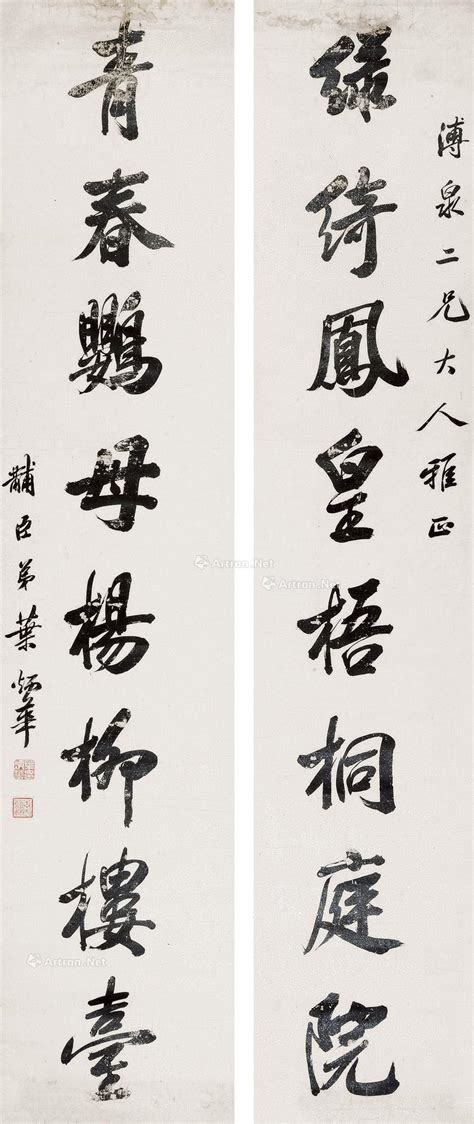 溥泉二兄大人雅正
绿绮鳳皇梧桐庭院
青春鸚母楊柳樓臺
黼臣弟葉炳華
Artron.Net
Artron.Net
Artron.Net
Artron.Net
Artron.Net